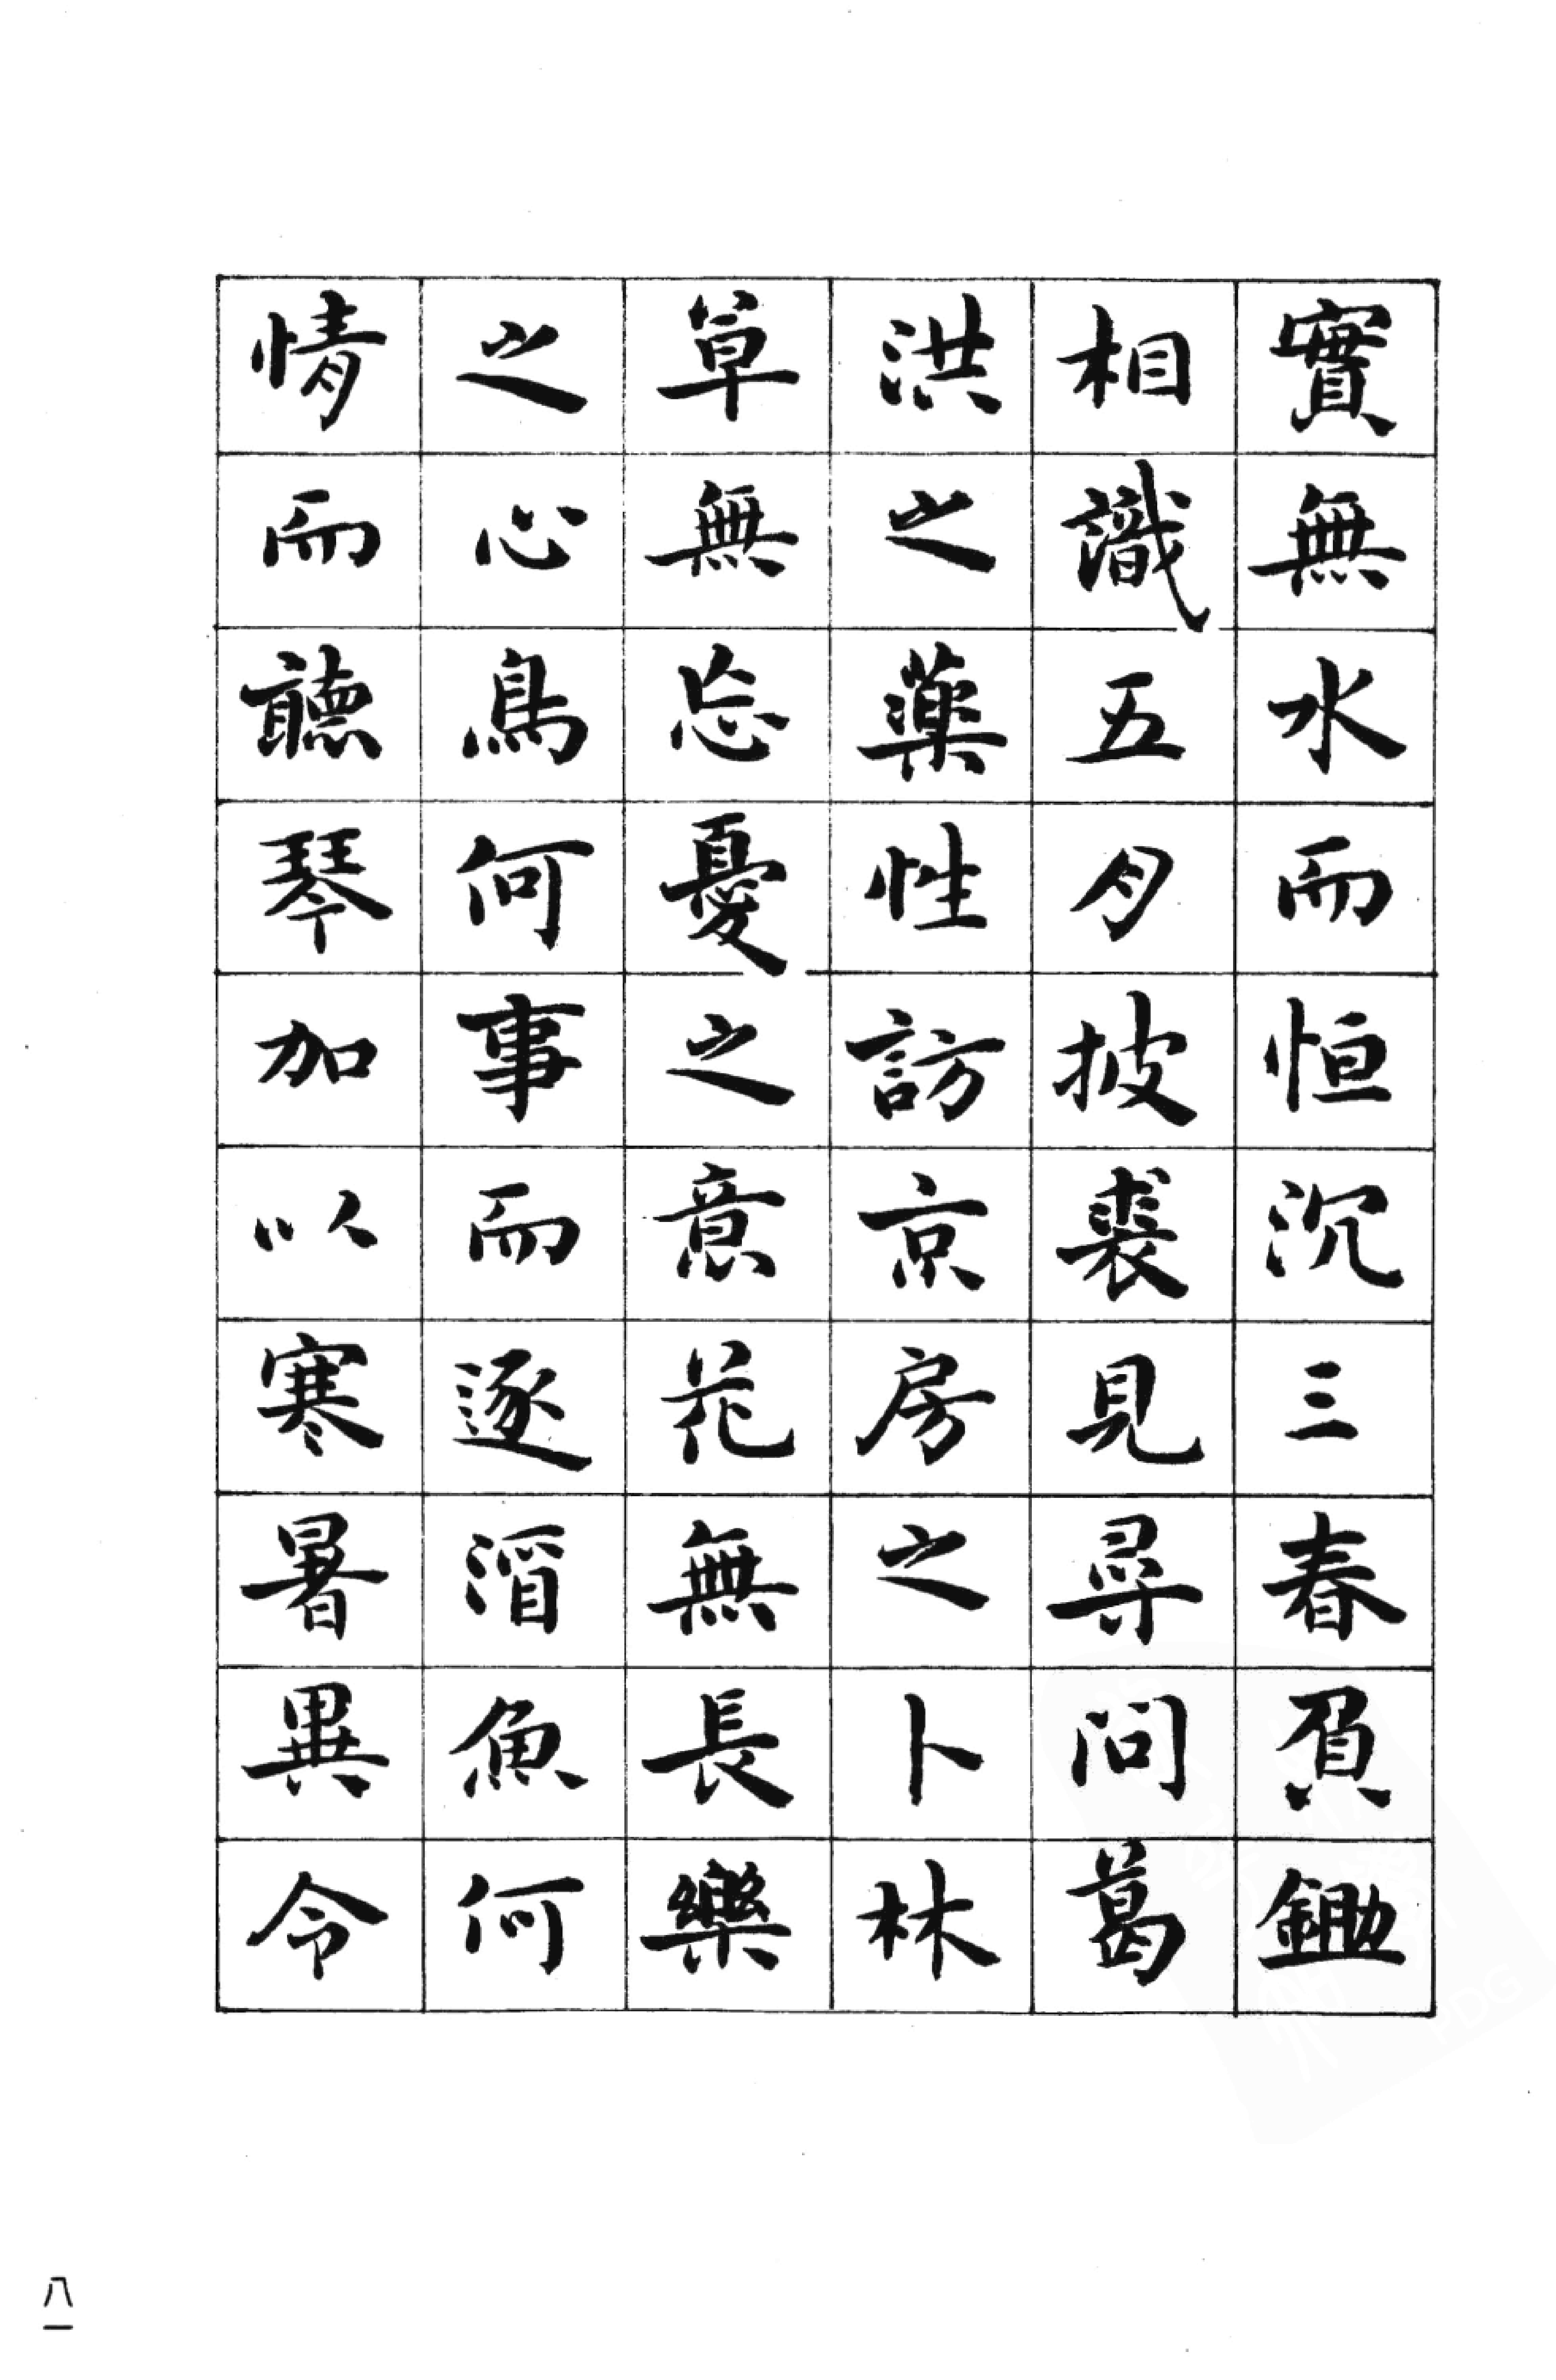 實無水而恒沉三春負鋤
相識五月披裘見尋問葛
洪之藥性訪京房之卜林
草無忘憂之意花無長樂
之心鳥何事而逐酒魚何
情而聽琴加以寒暑異令
八一